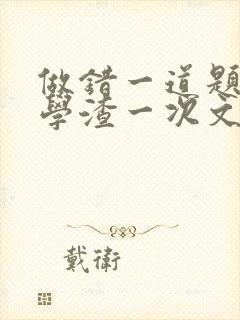 做錯一道題
學渣一次文
戴衛